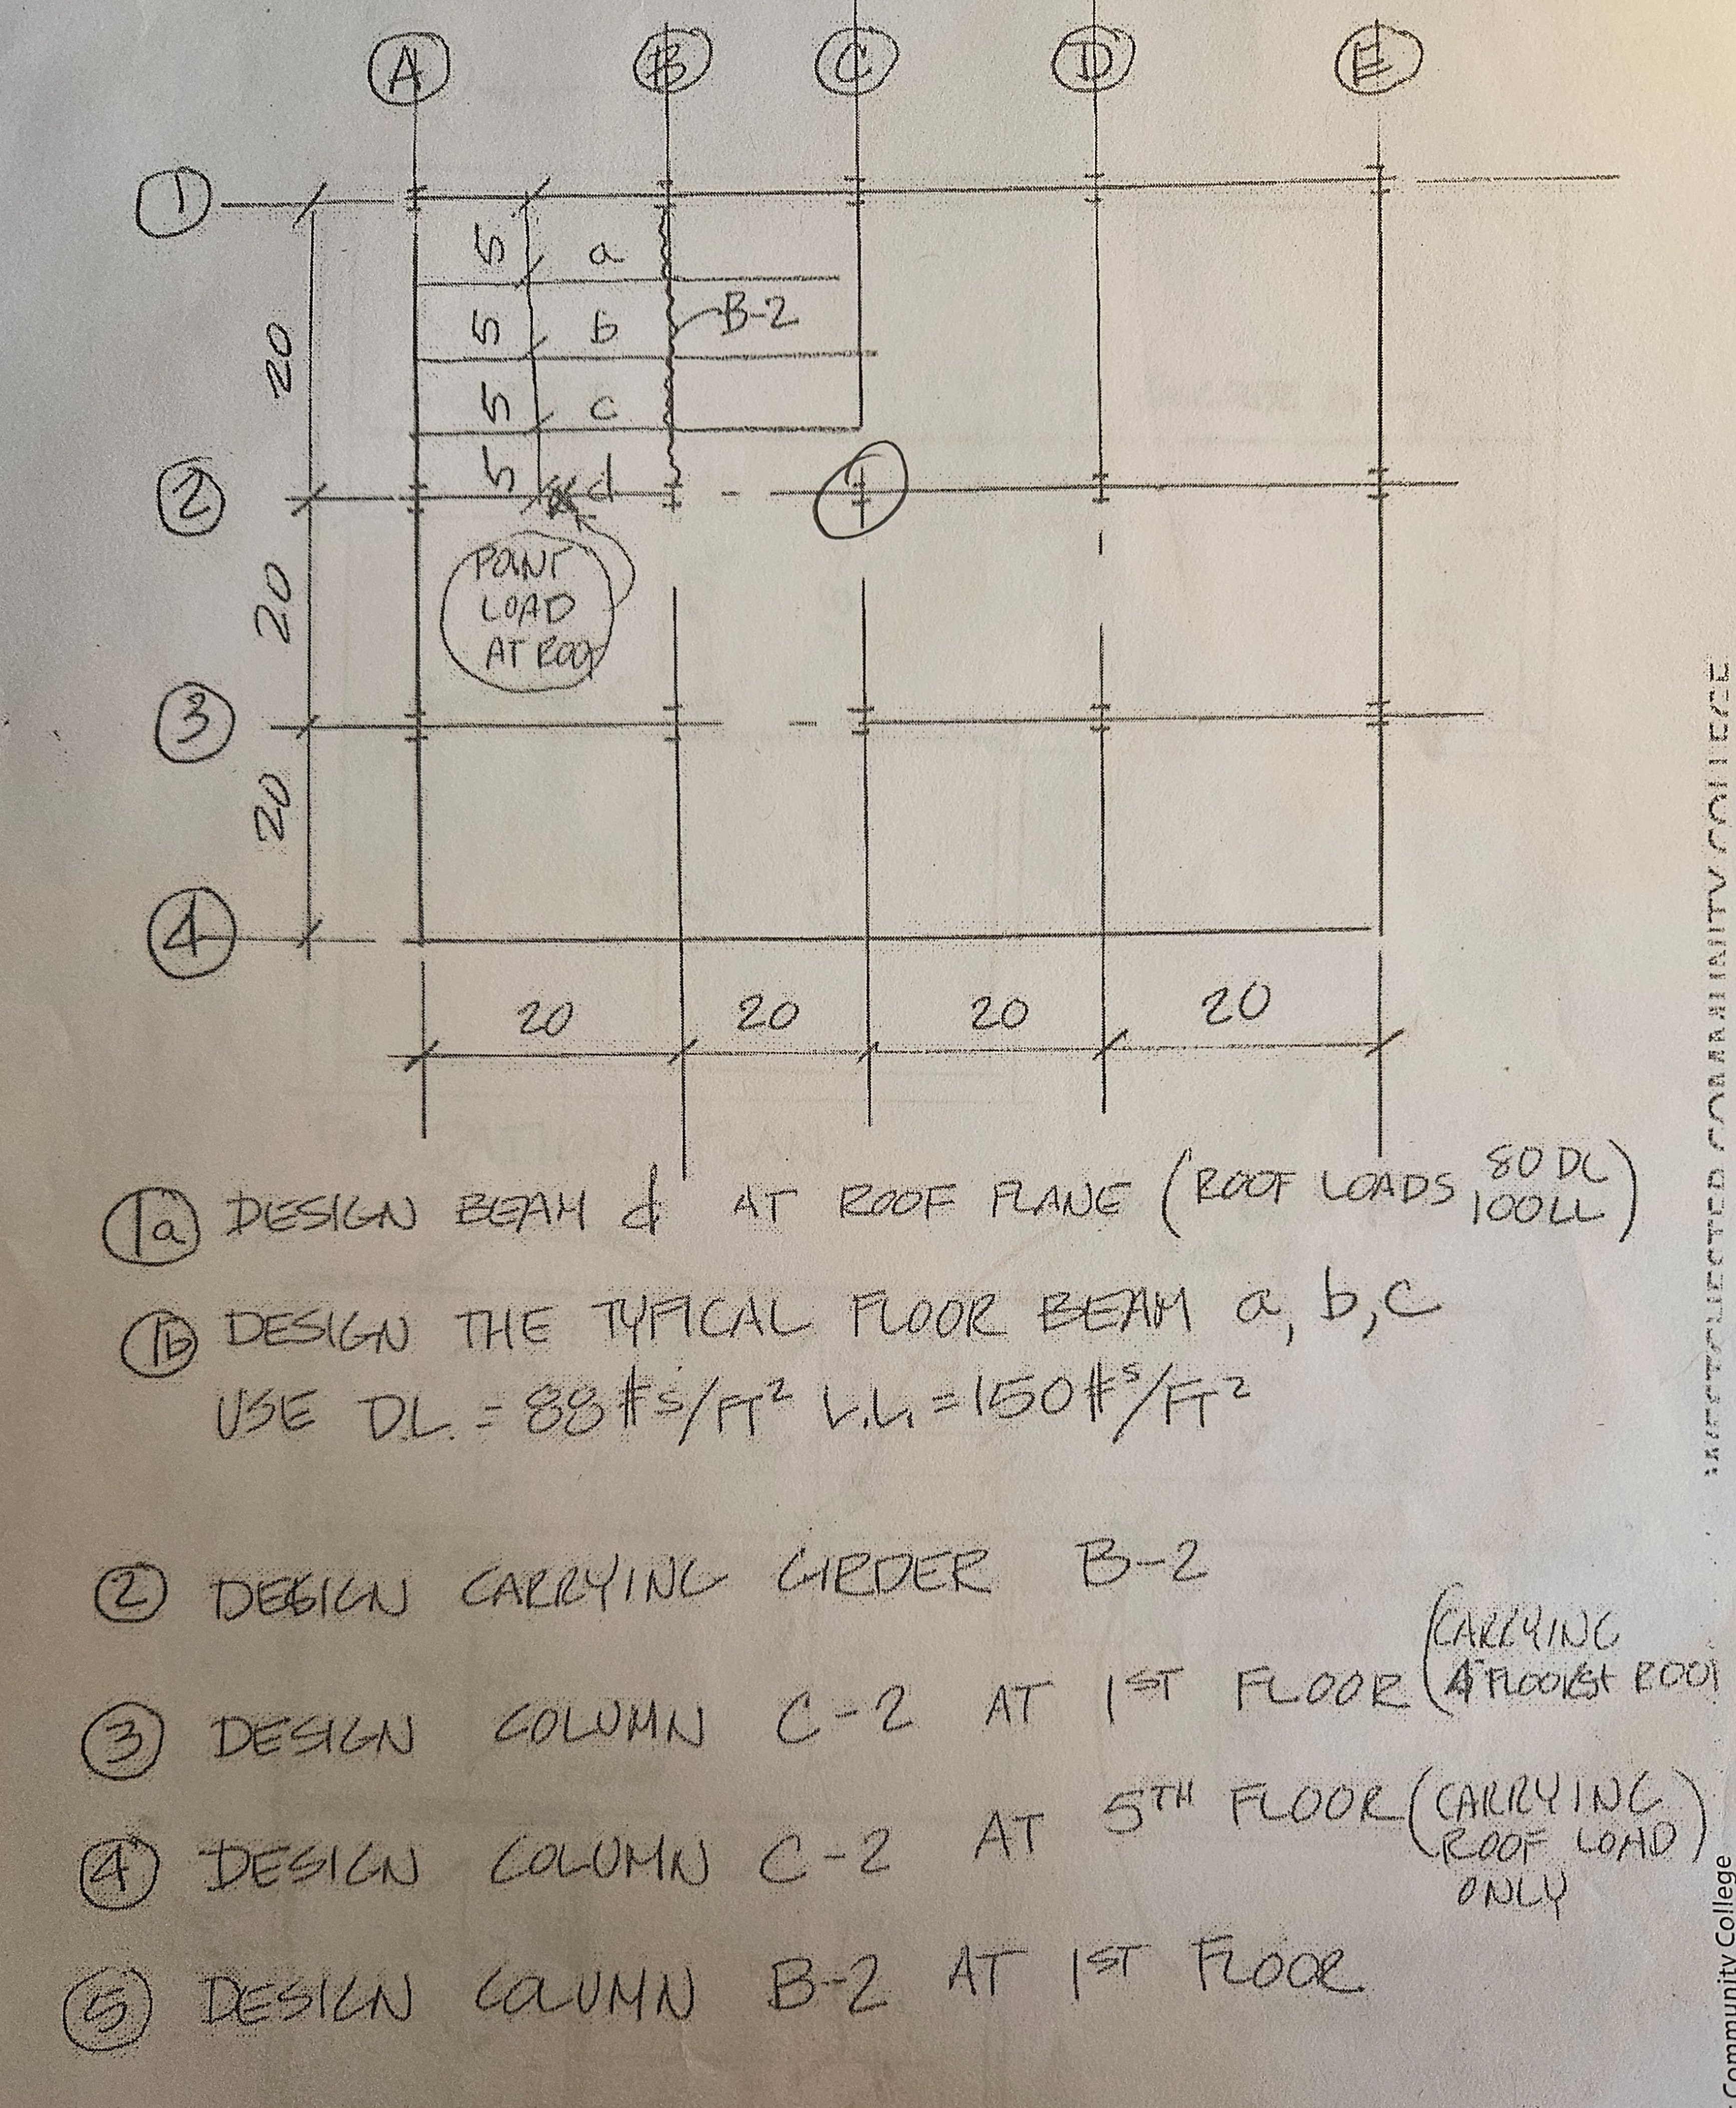 A B C D E
1
5 a
20
5 b B-2
5 c
5 d
2
POINT
LOAD
AT ROOF
20
3
20
4
20 20 20 20
1a DESIGN BEAM d AT ROOF PLANE (ROOF LOADS 80 DL
100 LL)
1b DESIGN THE TYPICAL FLOOR BEAM a, b, c
USE D.L. = 88 #s/FT² L.L. = 150 #s/FT²
2 DESIGN CARRYING GIRDER B-2
3 DESIGN COLUMN C-2 AT 1ST FLOOR (CARRYING
4 FLOORS + ROOF
4 DESIGN COLUMN C-2 AT 5TH FLOOR (CARRYING
ROOF LOAD)
ONLY
5 DESIGN COLUMN B-2 AT 1ST FLOOR
WESTCHESTER COMMUNITY COLLEGE
Community College